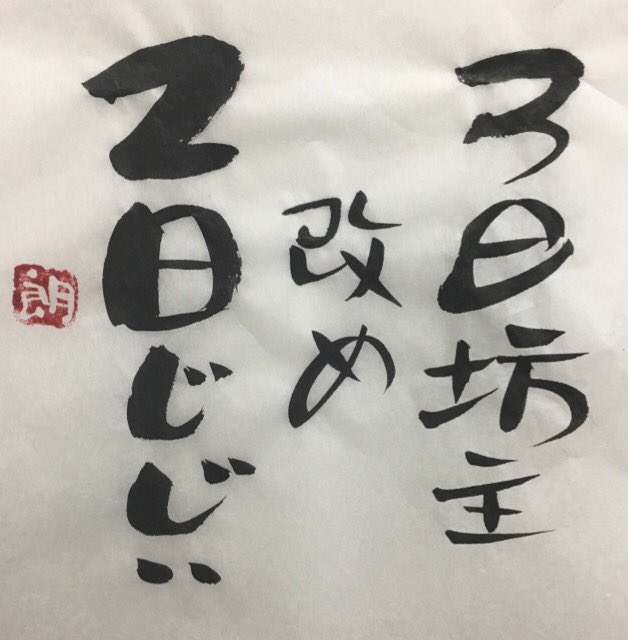 3日坊主
改め
2日じじい
朗